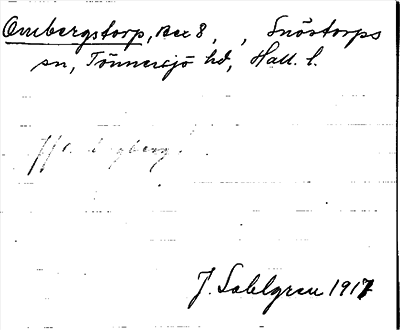 Ombergstorp, Rex 8, , Snöstorps
sn, Tönnersjö hd, Hall. l.
J. Sahlgren 1917